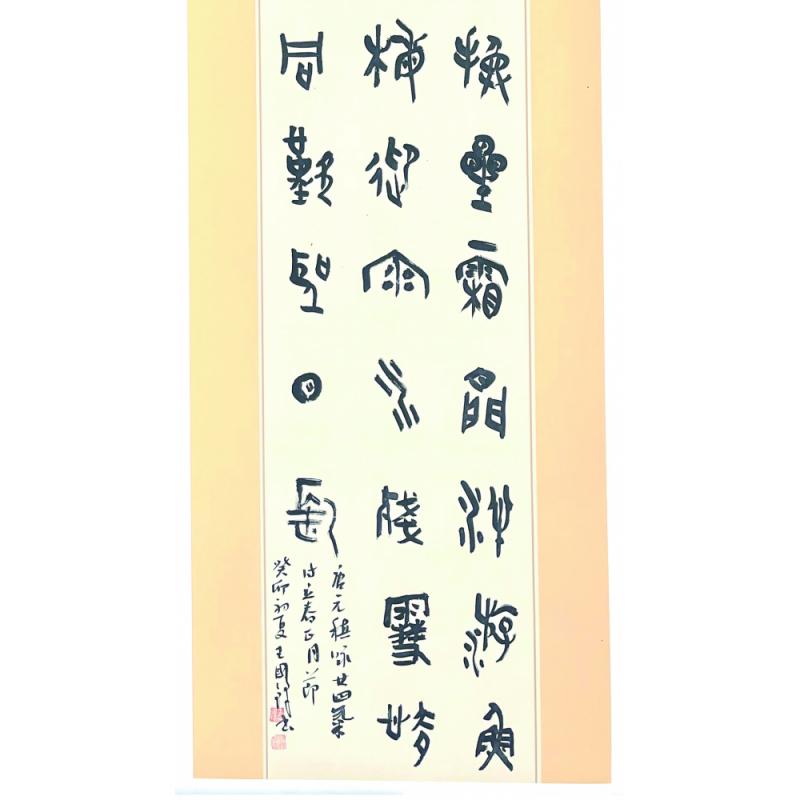 換星霜泮游魚
梅迎雨水殘雪
同歡聖日長
唐元稹詠廿四氣
詩立春正月節
癸卯初夏王國書